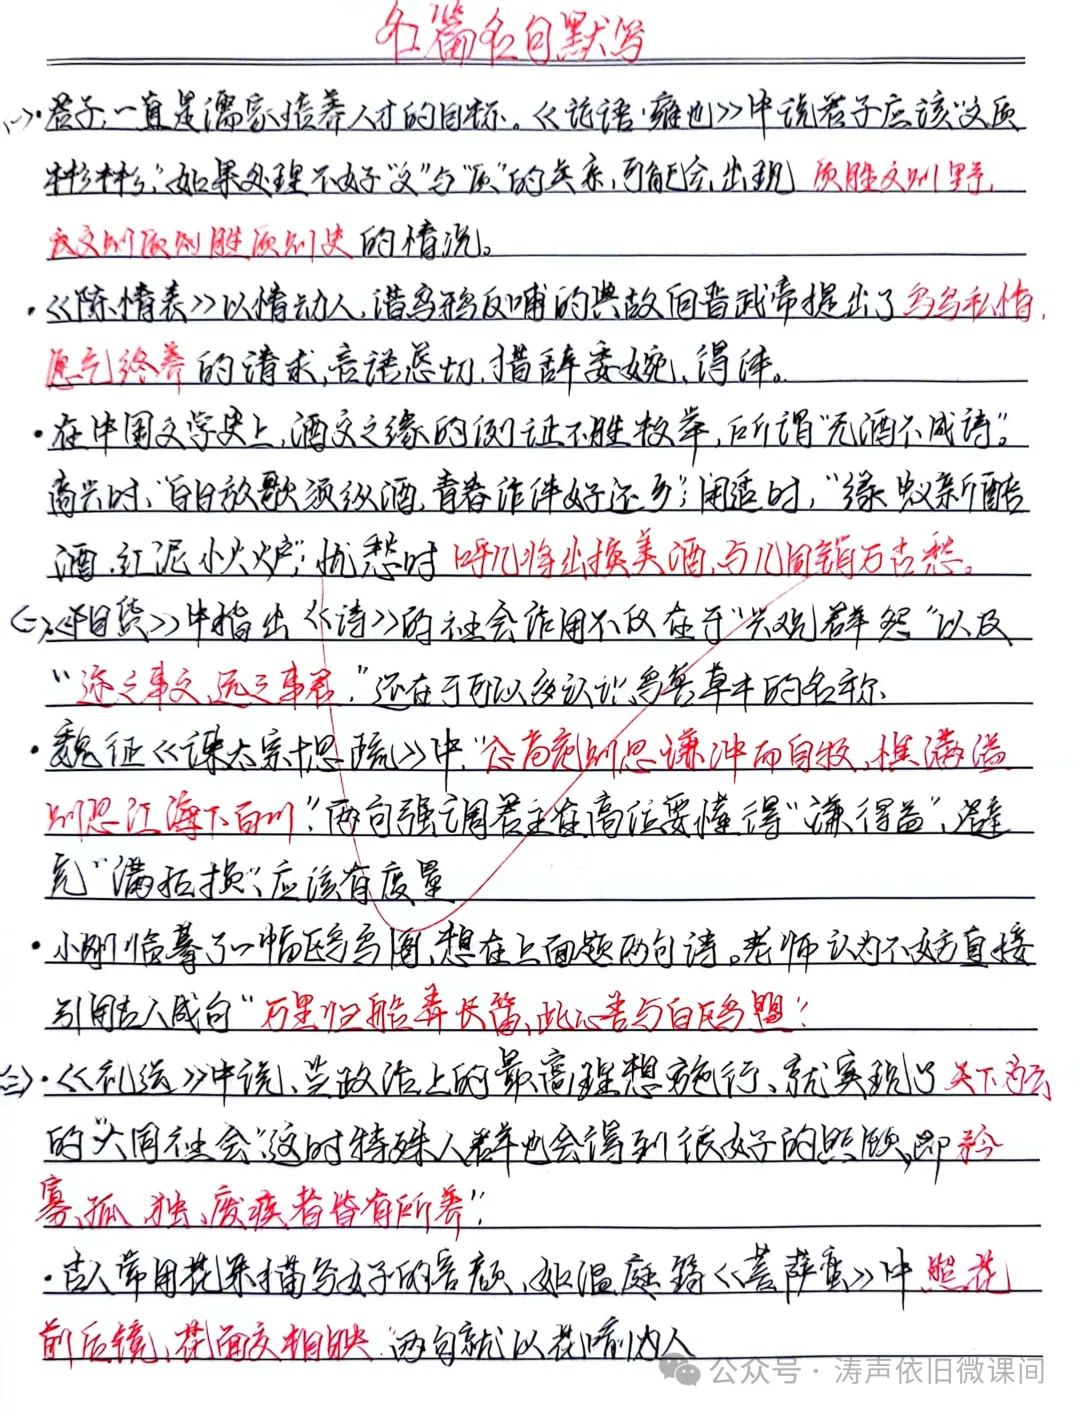 名篇名句默写
(一)·君子,一直是儒家培养人才的目标。《论语·雍也》中说君子应该"文质
彬彬",如果处理不好"文"与"质"的关系,可能会出现 质胜文则野,
文胜质则史的情况。
·《陈情表》以情动人,借乌鸦反哺的典故向晋武帝提出了乌鸟私情,
愿乞终养的请求,言语恳切,措辞委婉、得体。
·在中国文学史上,酒文之缘的例证不胜枚举,所谓"无酒不成诗"。
高兴时,"白日放歌须纵酒,青春作伴好还乡";闲适时,"绿蚁新醅
酒,红泥小火炉";忧愁时 呼儿将出换美酒,与尔同销万古愁。
(二)·《阳货》中指出《诗》的社会作用不仅在于"兴观群怨"以及
"迩之事父,远之事君,"还在于可以多认识鸟兽草木的名称
·魏征《谏太宗十思疏》中,"念高危则思谦冲而自牧,惧满溢
则思江海下百川",两句强调君主在高位要懂得"谦得益",避
免"满招损",应该有度量
·小刚临摹了一幅鸥鸟图,想在上面题两句诗。老师认为不妨直接
引用古人成句"万里归船弄长笛,此心吾与白鸥盟"
(三)·《礼运》中说,当政治上的最高理想施行,就实现了天下为公
的"大同社会",这时特殊人群也会得到很好的照顾,即 矜、
寡、孤、独、废疾者皆有所养"
·古人常用花来描写女子的容颜,如温庭筠《菩萨蛮》中 照花
前后镜,花面交相映 两句就以花喻为人
公众号·涛声依旧微课间